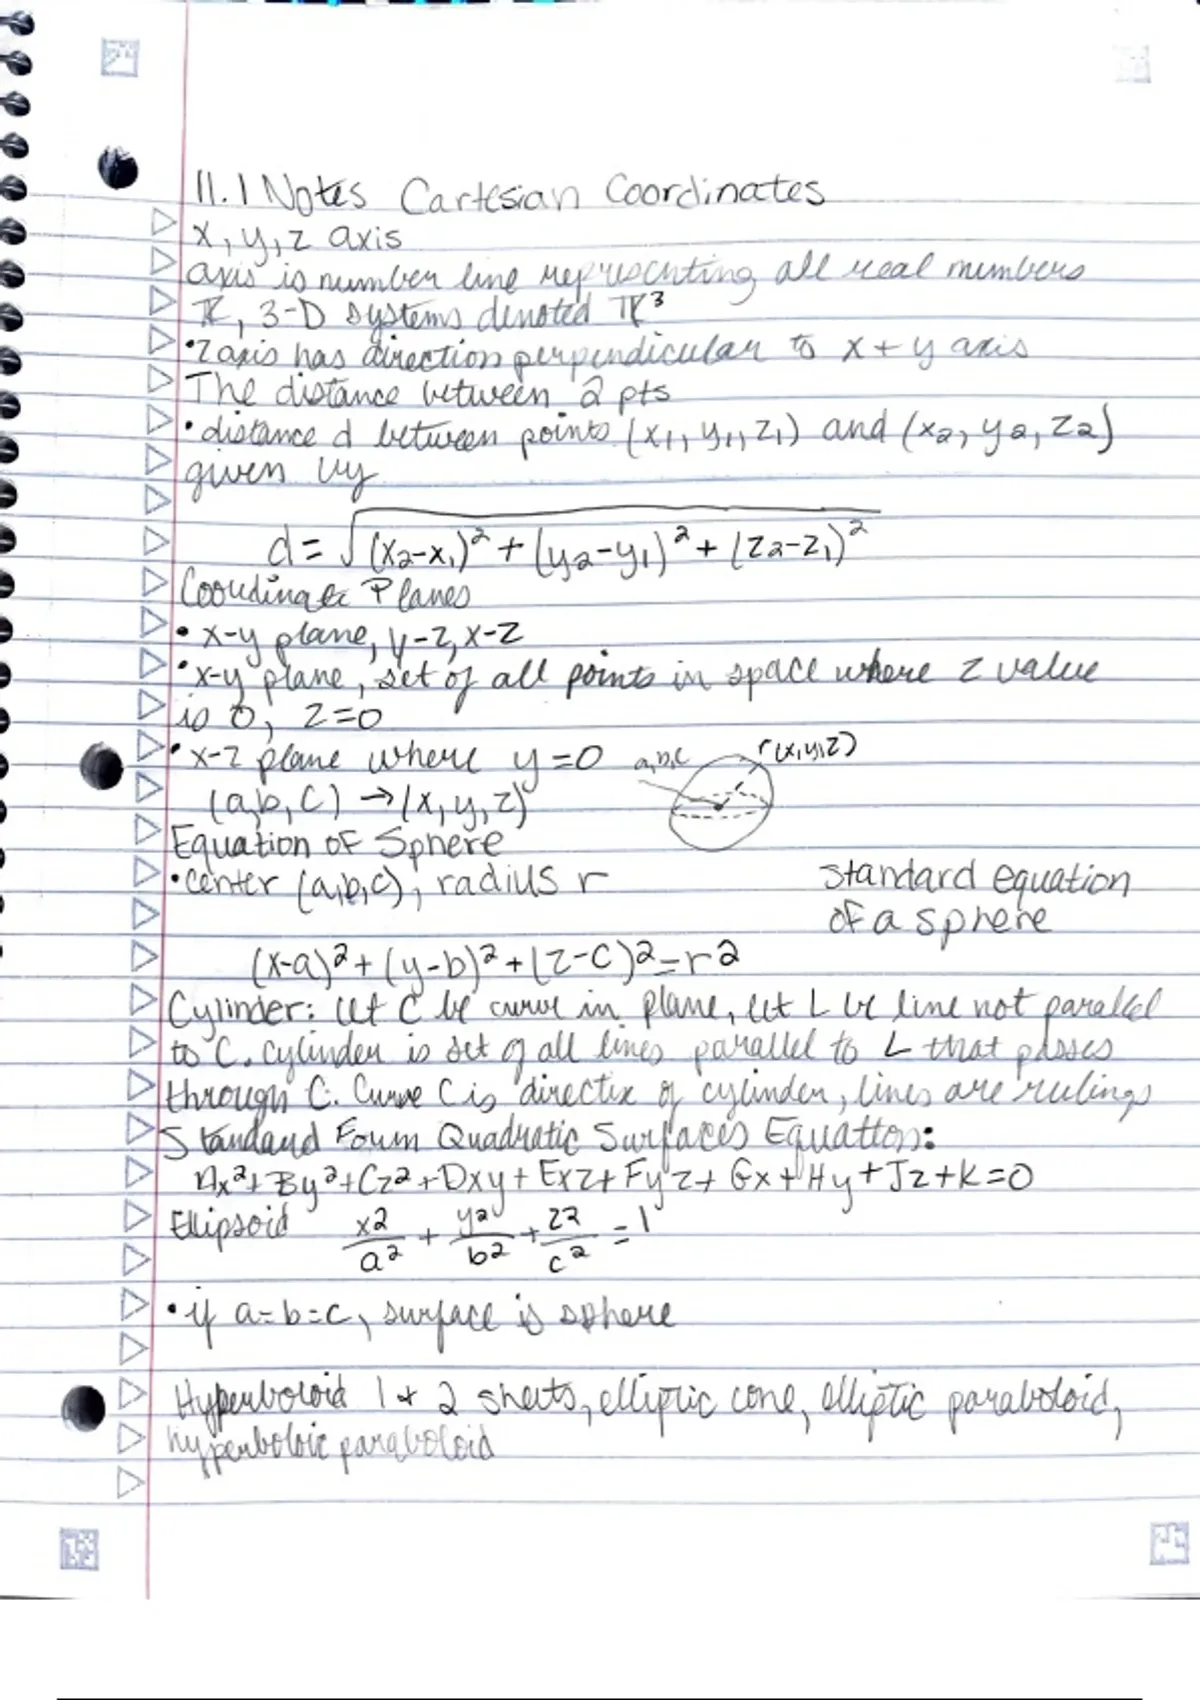 11.1 Notes Cartesian Coordinates
x, y, z axis
axis is number line representing all real numbers
ℝ, 3-D systems denoted ℝ³
• z axis has direction perpendicular to x + y axis
The distance between 2 pts
• distance d between points (x₁, y₁, z₁) and (x₂, y₂, z₂)
given by
d = √(x₂-x₁)² + (y₂-y₁)² + (z₂-z₁)²
Coordinate Planes
• x-y plane, y-z, x-z
• x-y plane, set of all points in space where z value
is 0, z=0
• x-z plane where y=0
a,b,c r(x,y,z)
(a,b,c) → (x,y,z)
Equation of Sphere
• center (a,b,c), radius r
standard equation
of a sphere
(x-a)² + (y-b)² + (z-c)² = r²
Cylinder: let C be curve in plane, let L be line not parallel
to C. cylinder is set of all lines parallel to L that passes
through C. Curve C is directix of cylinder, lines are rulings
Standard Form Quadratic Surfaces Equation:
Ax² + By² + Cz² + Dxy + Exz + Fyz + Gx + Hy + Jz + K = 0
Ellipsoid x²/a² + y²/b² + z²/c² = 1
• if a=b=c, surface is sphere
Hyperboloid 1 + 2 sheets, elliptic cone, elliptic paraboloid,
hyperbolic paraboloid